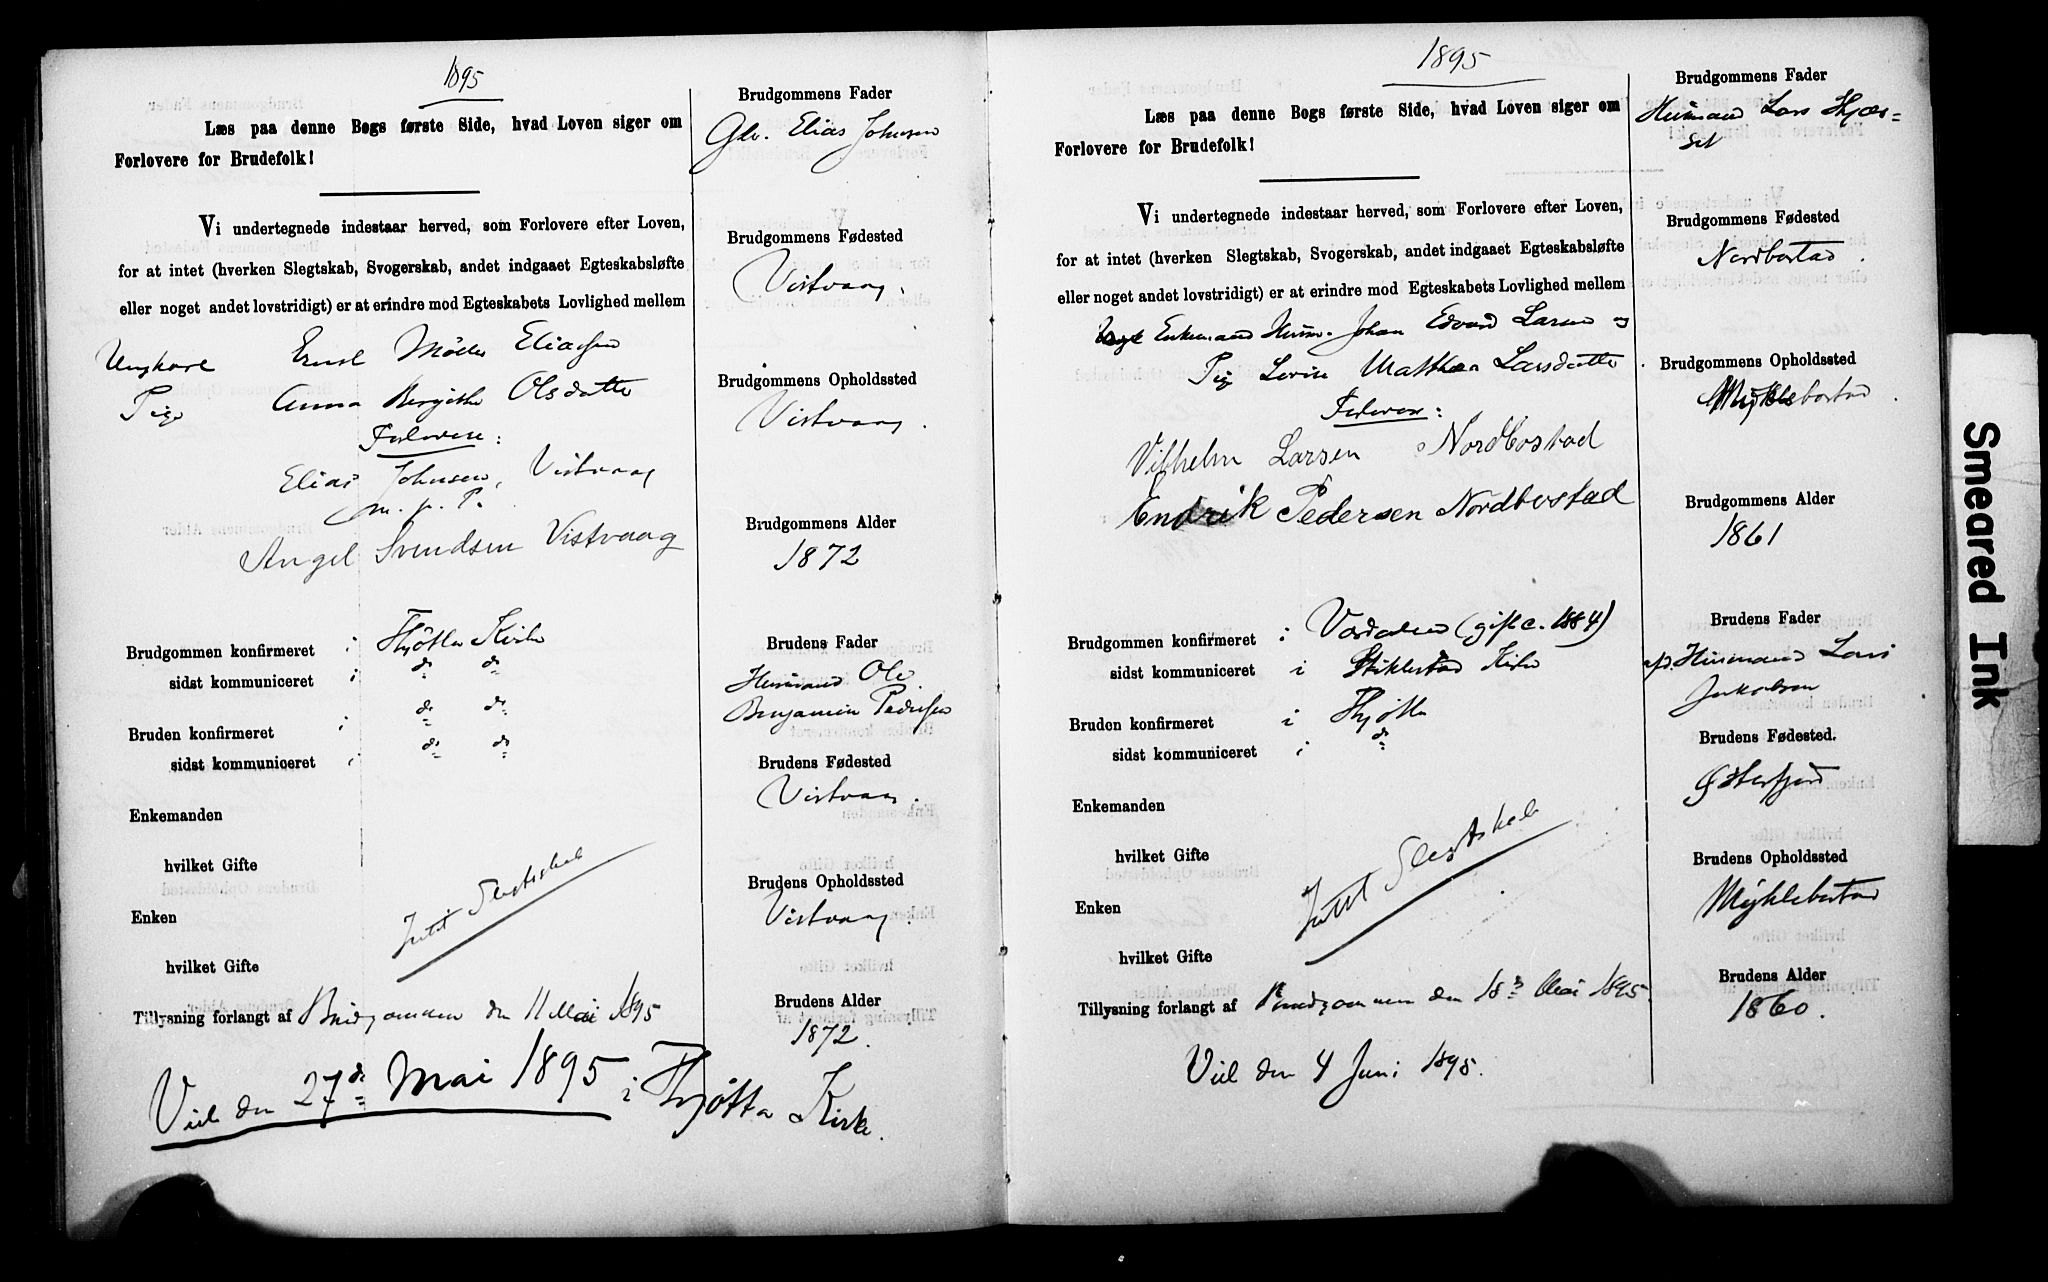 1895
Læs paa denne Bogs første Side, hvad Loven siger om
Forlovere for Brudefolk!
Vi undertegnede indestaar herved, som Forlovere efter Loven,
for at intet (hverken Slegtskab, Svogerskab, andet indgaaet Egteskabsløfte
eller noget andet lovstridigt) er at erindre mod Egteskabets Lovlighed mellem
Ungkarl Ernst Möller Eliassen
Pige Anna Bergitte Olsdatter
Forlovere:
Elias Johnsen, Vistvaag
m. p. P.
Angel Svendsen Vistvaag
Brudgommen konfirmeret i Thjøtta Kirke
sidst kommuniceret i do do
Bruden konfirmeret i do do
sidst kommuniceret i do do
Enkemanden
hvilket Gifte
Enken
hvilket Gifte
Intet Slegtskab
Tillysning forlangt af Brudgommen den 11 Mai 1895
Viet den 27de Mai 1895 i Thjøtta Kirke.
Brudgommens Fader
Gbr. Elias Johnsen
Brudgommens Fødested
Vistvaag.
Brudgommens Opholdssted
Vistvaag.
Brudgommens Alder
1872
Brudens Fader
Husmand Ole
Benjamin Pedersen
Brudens Fødested
Vistvaag.
Brudens Opholdssted
Vistvaag.
Brudens Alder
1872.
1895
Læs paa denne Bogs første Side, hvad Loven siger om
Forlovere for Brudefolk!
Vi undertegnede indestaar herved, som Forlovere efter Loven,
for at intet (hverken Slegtskab, Svogerskab, andet indgaaet Egteskabsløfte
eller noget andet lovstridigt) er at erindre mod Egteskabets Lovlighed mellem
Enkemand Husm. Johan Edvard Larsen og
Pige Lovise Matthea Larsdatter.
Forlovere:
Vilhelm Larsen Nordbostad
Endrik Pedersen Nordbostad
Brudgommen konfirmeret i Værdalen (gift c. 1884)
sidst kommuniceret i Stiklestad Kirke
Bruden konfirmeret i Thjøtta
sidst kommuniceret i do
Enkemanden
hvilket Gifte
Enken
hvilket Gifte
Intet Slegtskab
Tillysning forlangt af Brudgommen den 18de Mai 1895
Viet den 4 Juni 1895.
Brudgommens Fader
Husmand Lars
Brudgommens Fødested
Nordbostad.
Brudgommens Opholdssted
Myklebostad.
Brudgommens Alder
1861
Brudens Fader
afd. Husmand Lars
Jakobsen
Brudens Fødested.
Østerfjord
Brudens Opholdssted
Myklebostad
Brudens Alder
1860.
Smeared Ink